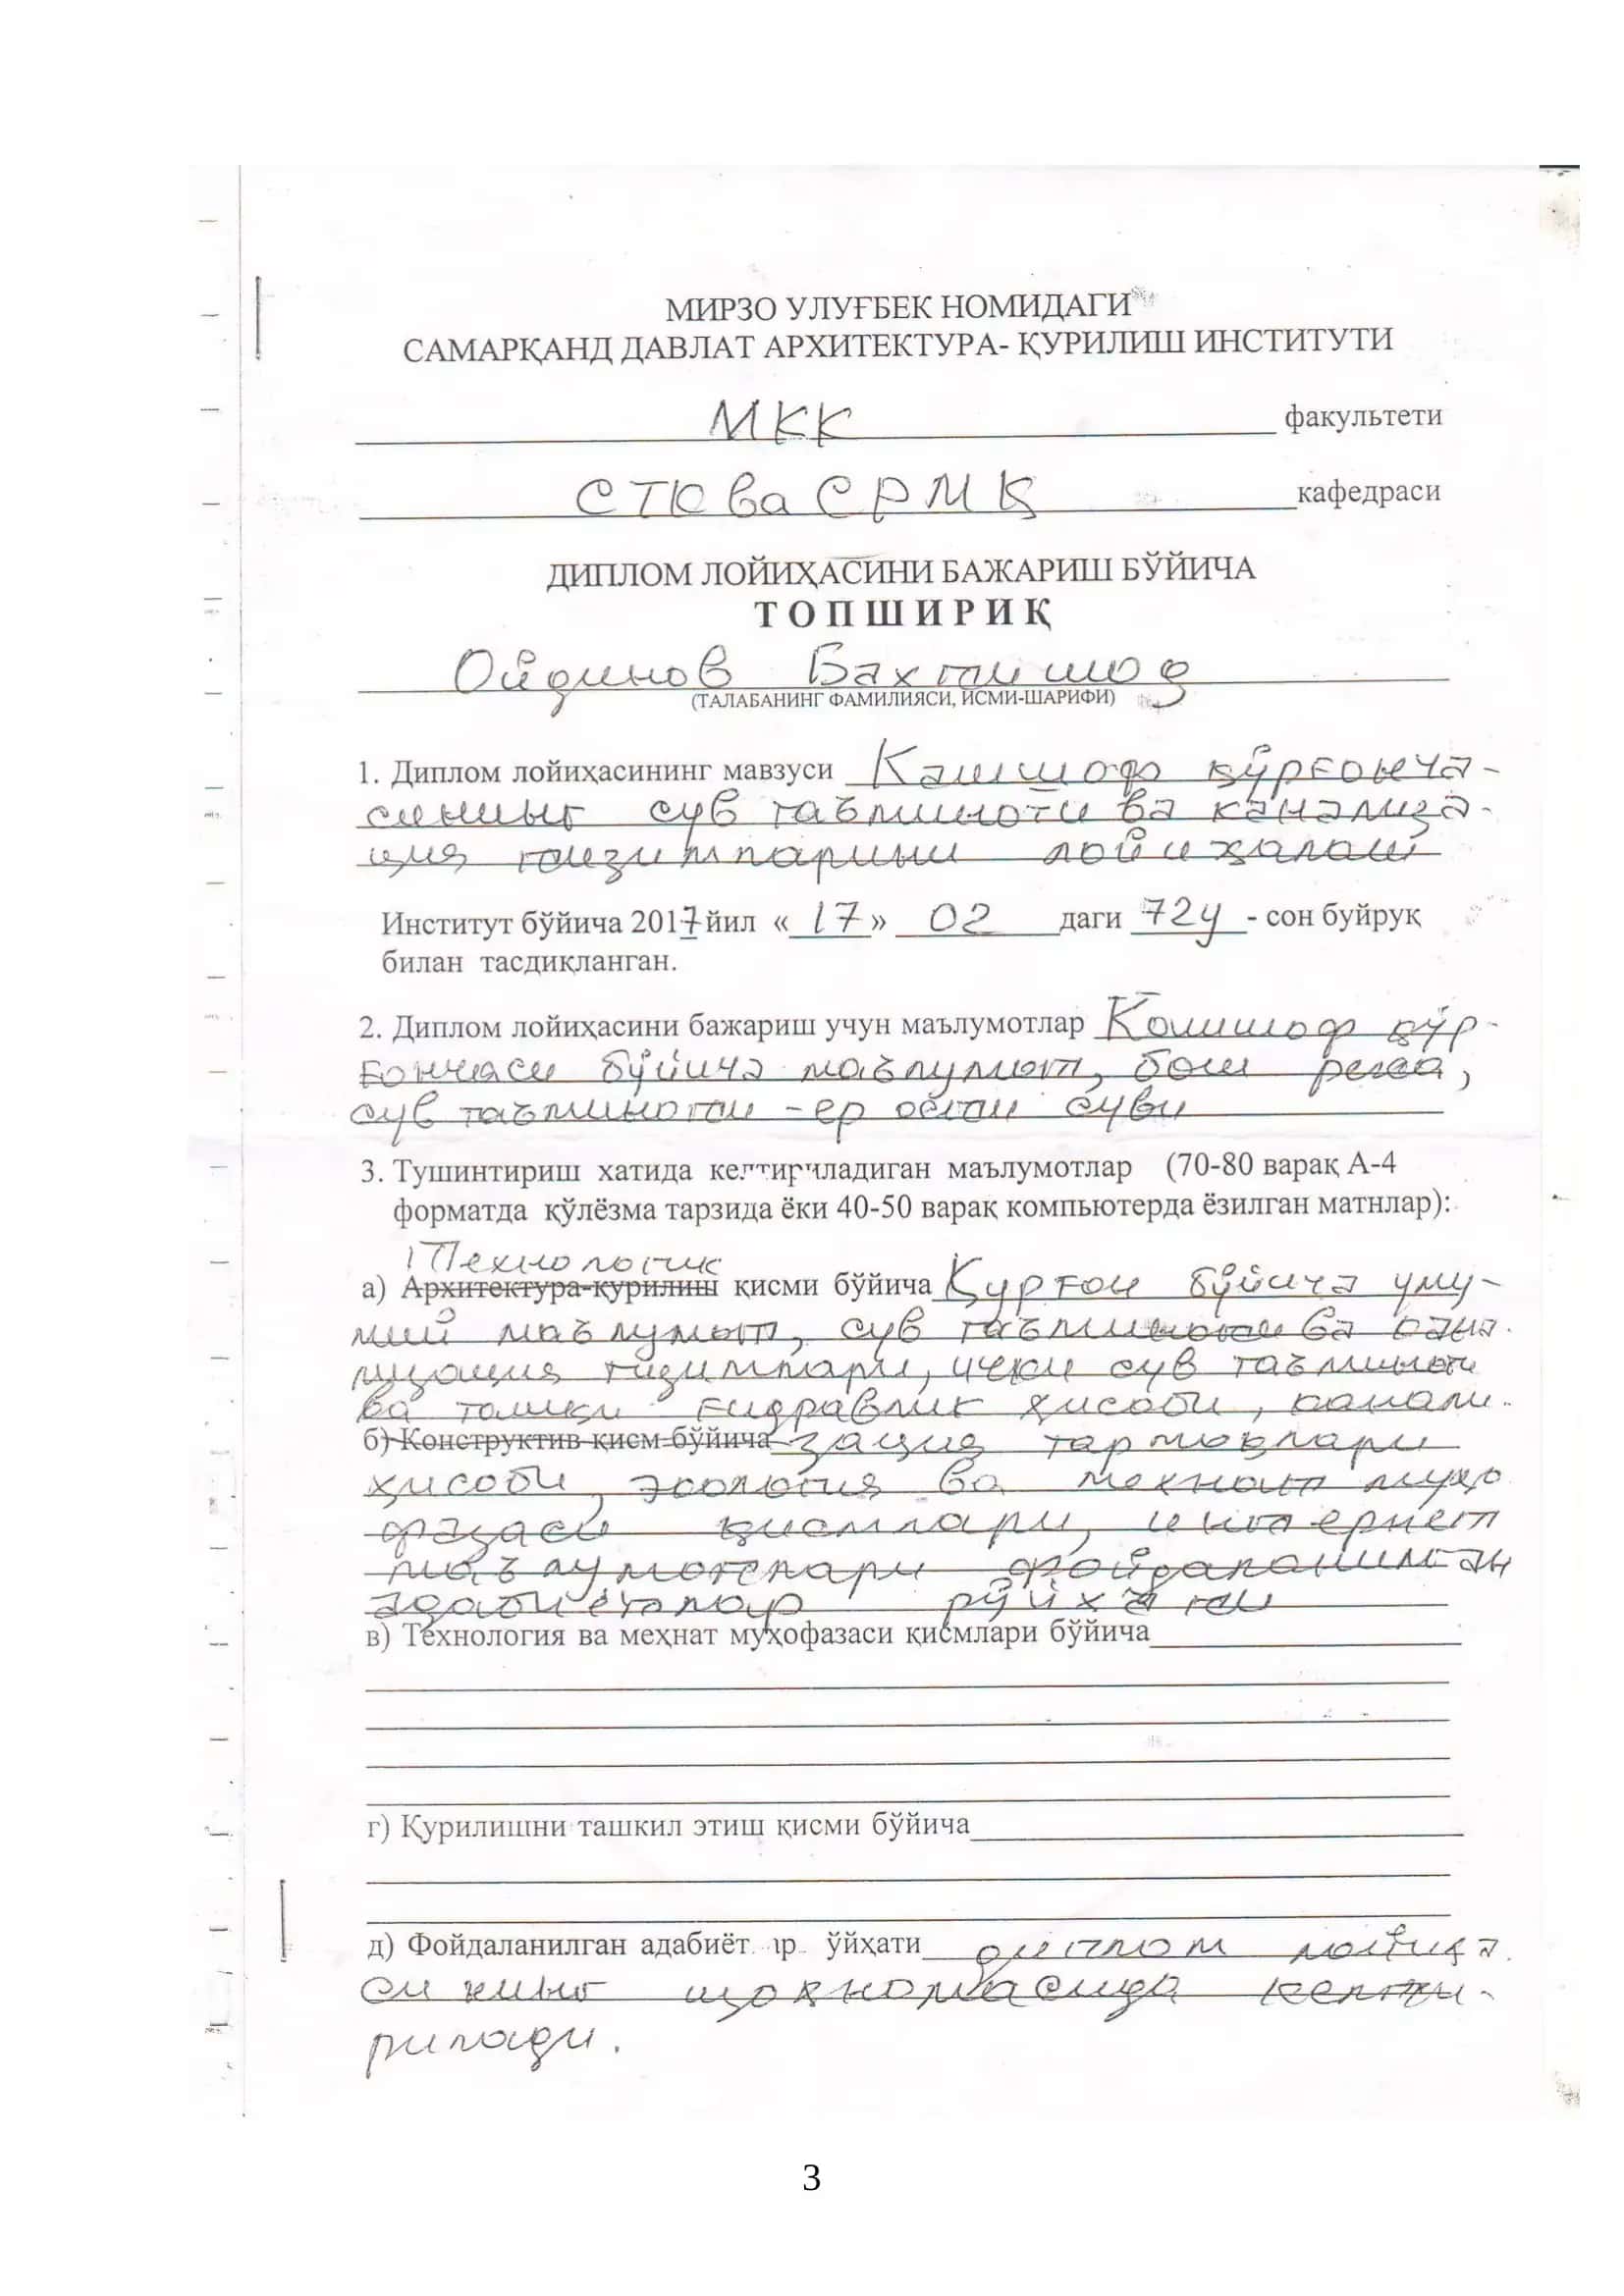 МИРЗО УЛУҒБЕК НОМИДАГИ
САМАРҚАНД ДАВЛАТ АРХИТЕКТУРА- ҚУРИЛИШ ИНСТИТУТИ
МКК факультети
СТК ва СРМҚ кафедраси
ДИПЛОМ ЛОЙИҲАСИНИ БАЖАРИШ БЎЙИЧА
ТОПШИРИҚ
Ойдинов Бахтишод
(ТАЛАБАНИНГ ФАМИЛИЯСИ, ИСМИ-ШАРИФИ)
1. Диплом лойиҳасининг мавзуси Кашшоф қўрғонча-
сининг сув таъминоти ва канализа-
ция тизимларини лойиҳалаш
Институт бўйича 2017 йил «17» 02 даги 72у - сон буйруқ
билан тасдиқланган.
2. Диплом лойиҳасини бажариш учун маълумотлар Кашшоф қўр-
ғончаси бўйича маълумот, бош режа,
сув таъминоти - ер ости суви
3. Тушинтириш хатида келтириладиган маълумотлар (70-80 варақ А-4
форматда қўлёзма тарзида ёки 40-50 варақ компьютерда ёзилган матнлар):
Технологик
а) Архитектура-қурилиш қисми бўйича Қурғон бўйича уму-
мий маълумот, сув таъминоти ва кана-
лизация тизимлари, ички сув таъминоти
ва ташқи гидравлик ҳисоби, канали-
б) Конструктив қисм бўйича зация тармоқлари
ҳисоби, экология ва меҳнат муҳо
фазаси қисмлари, интернет
маълумотлари фойдаланилган
адабиётлар рўйхати
в) Технология ва меҳнат муҳофазаси қисмлари бўйича
г) Қурилишни ташкил этиш қисми бўйича
д) Фойдаланилган адабиёт ўйҳати диплом лойиҳа
сининг шоҳномасида келти-
рилади.
3